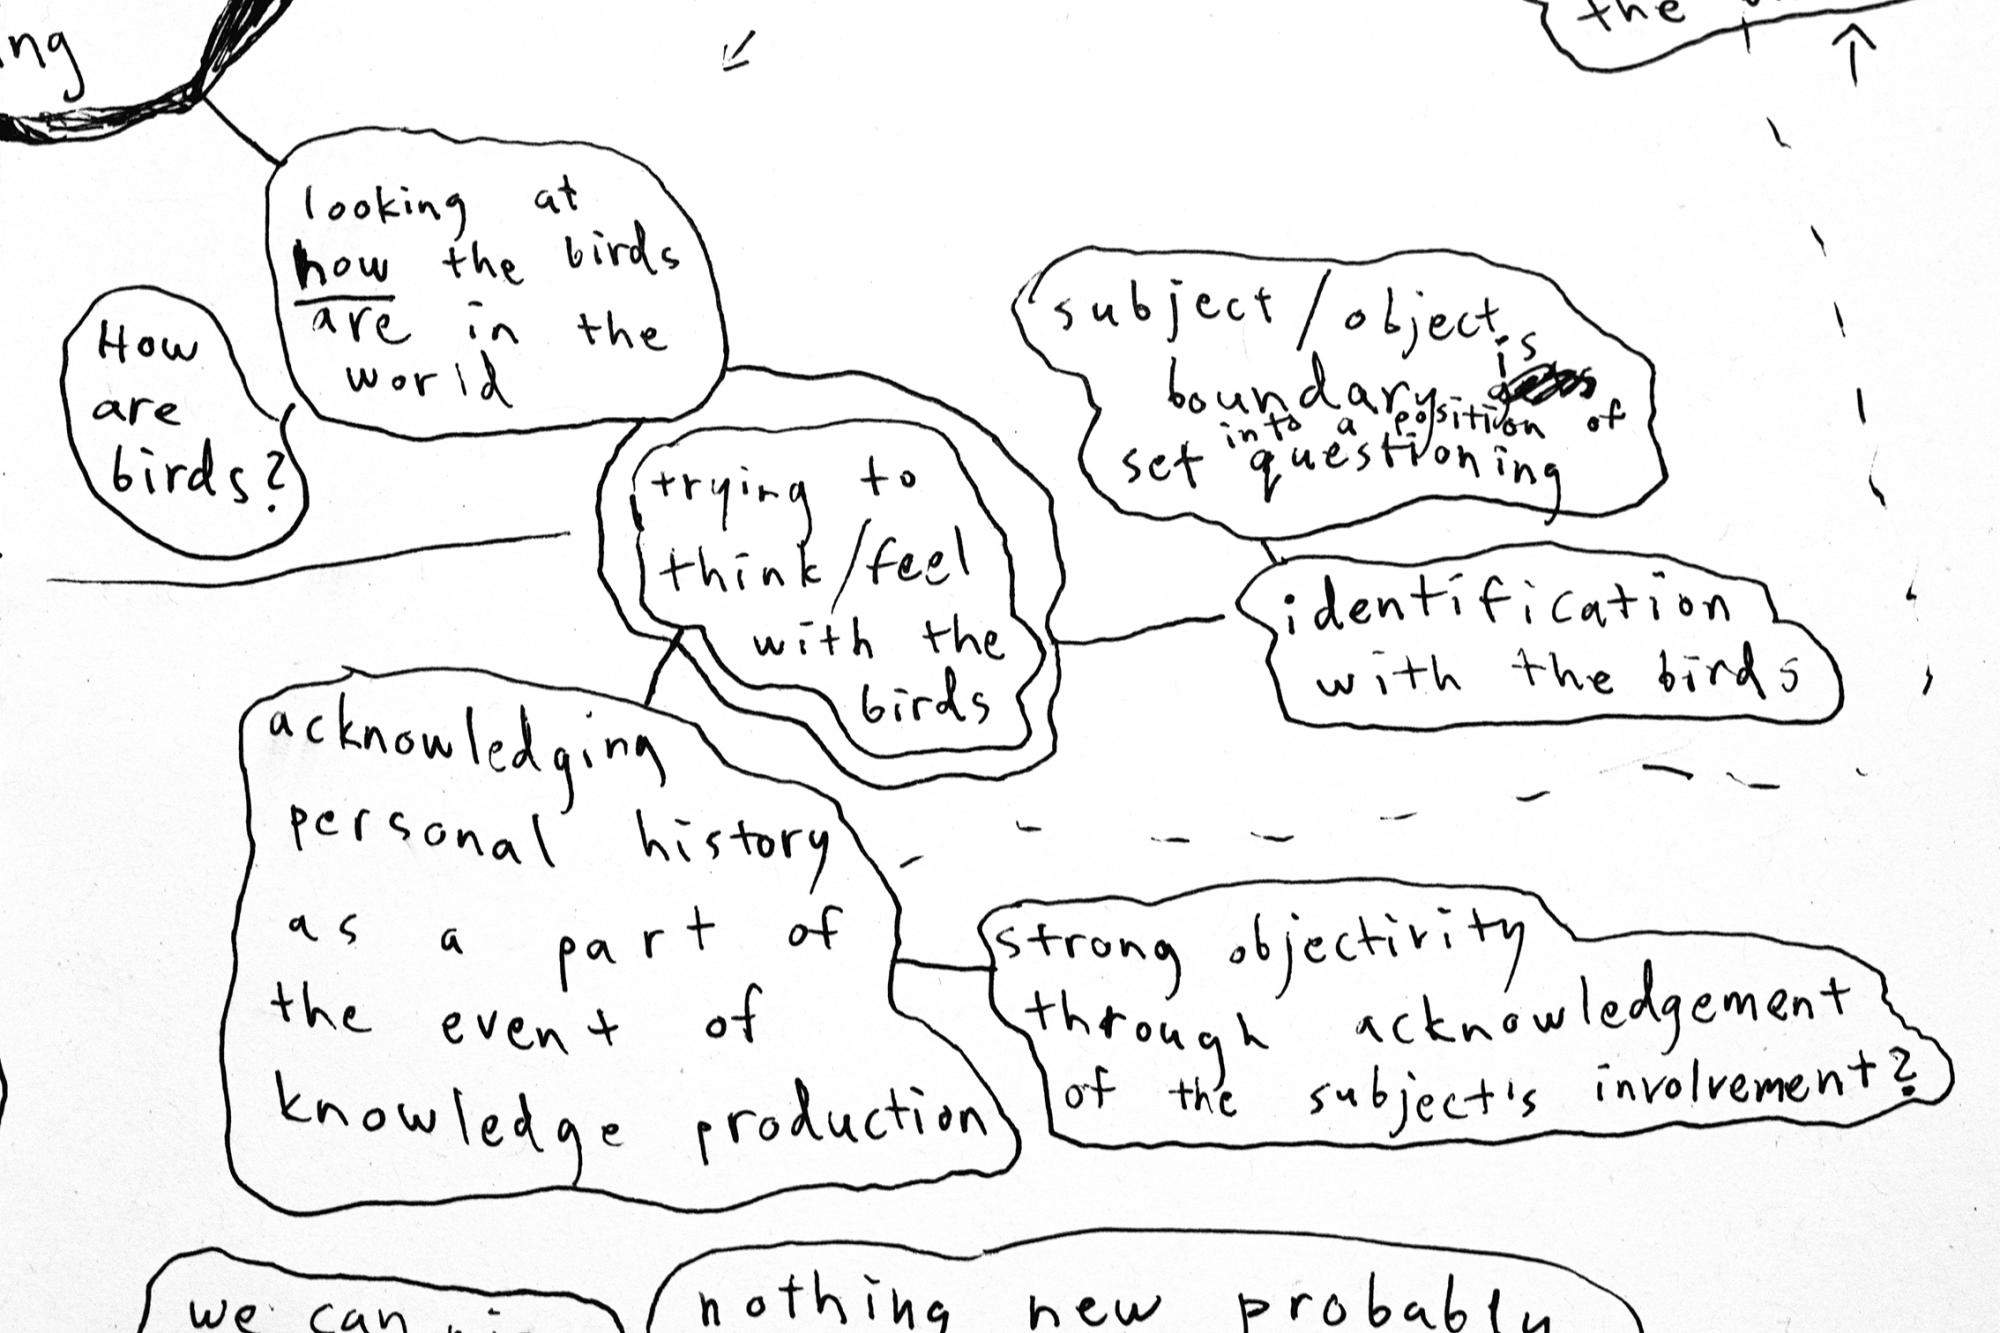 ng
the
looking at
how the birds
are in the
world
How
are
birds?
subject/object
is
boundary
into a position of
set questioning
trying to
think/feel
with the
birds
identification
with the birds
acknowledging
personal history
as a part of
the event of
knowledge production
strong objectivity
through acknowledgement
of the subject's involvement?
we can
nothing new probably